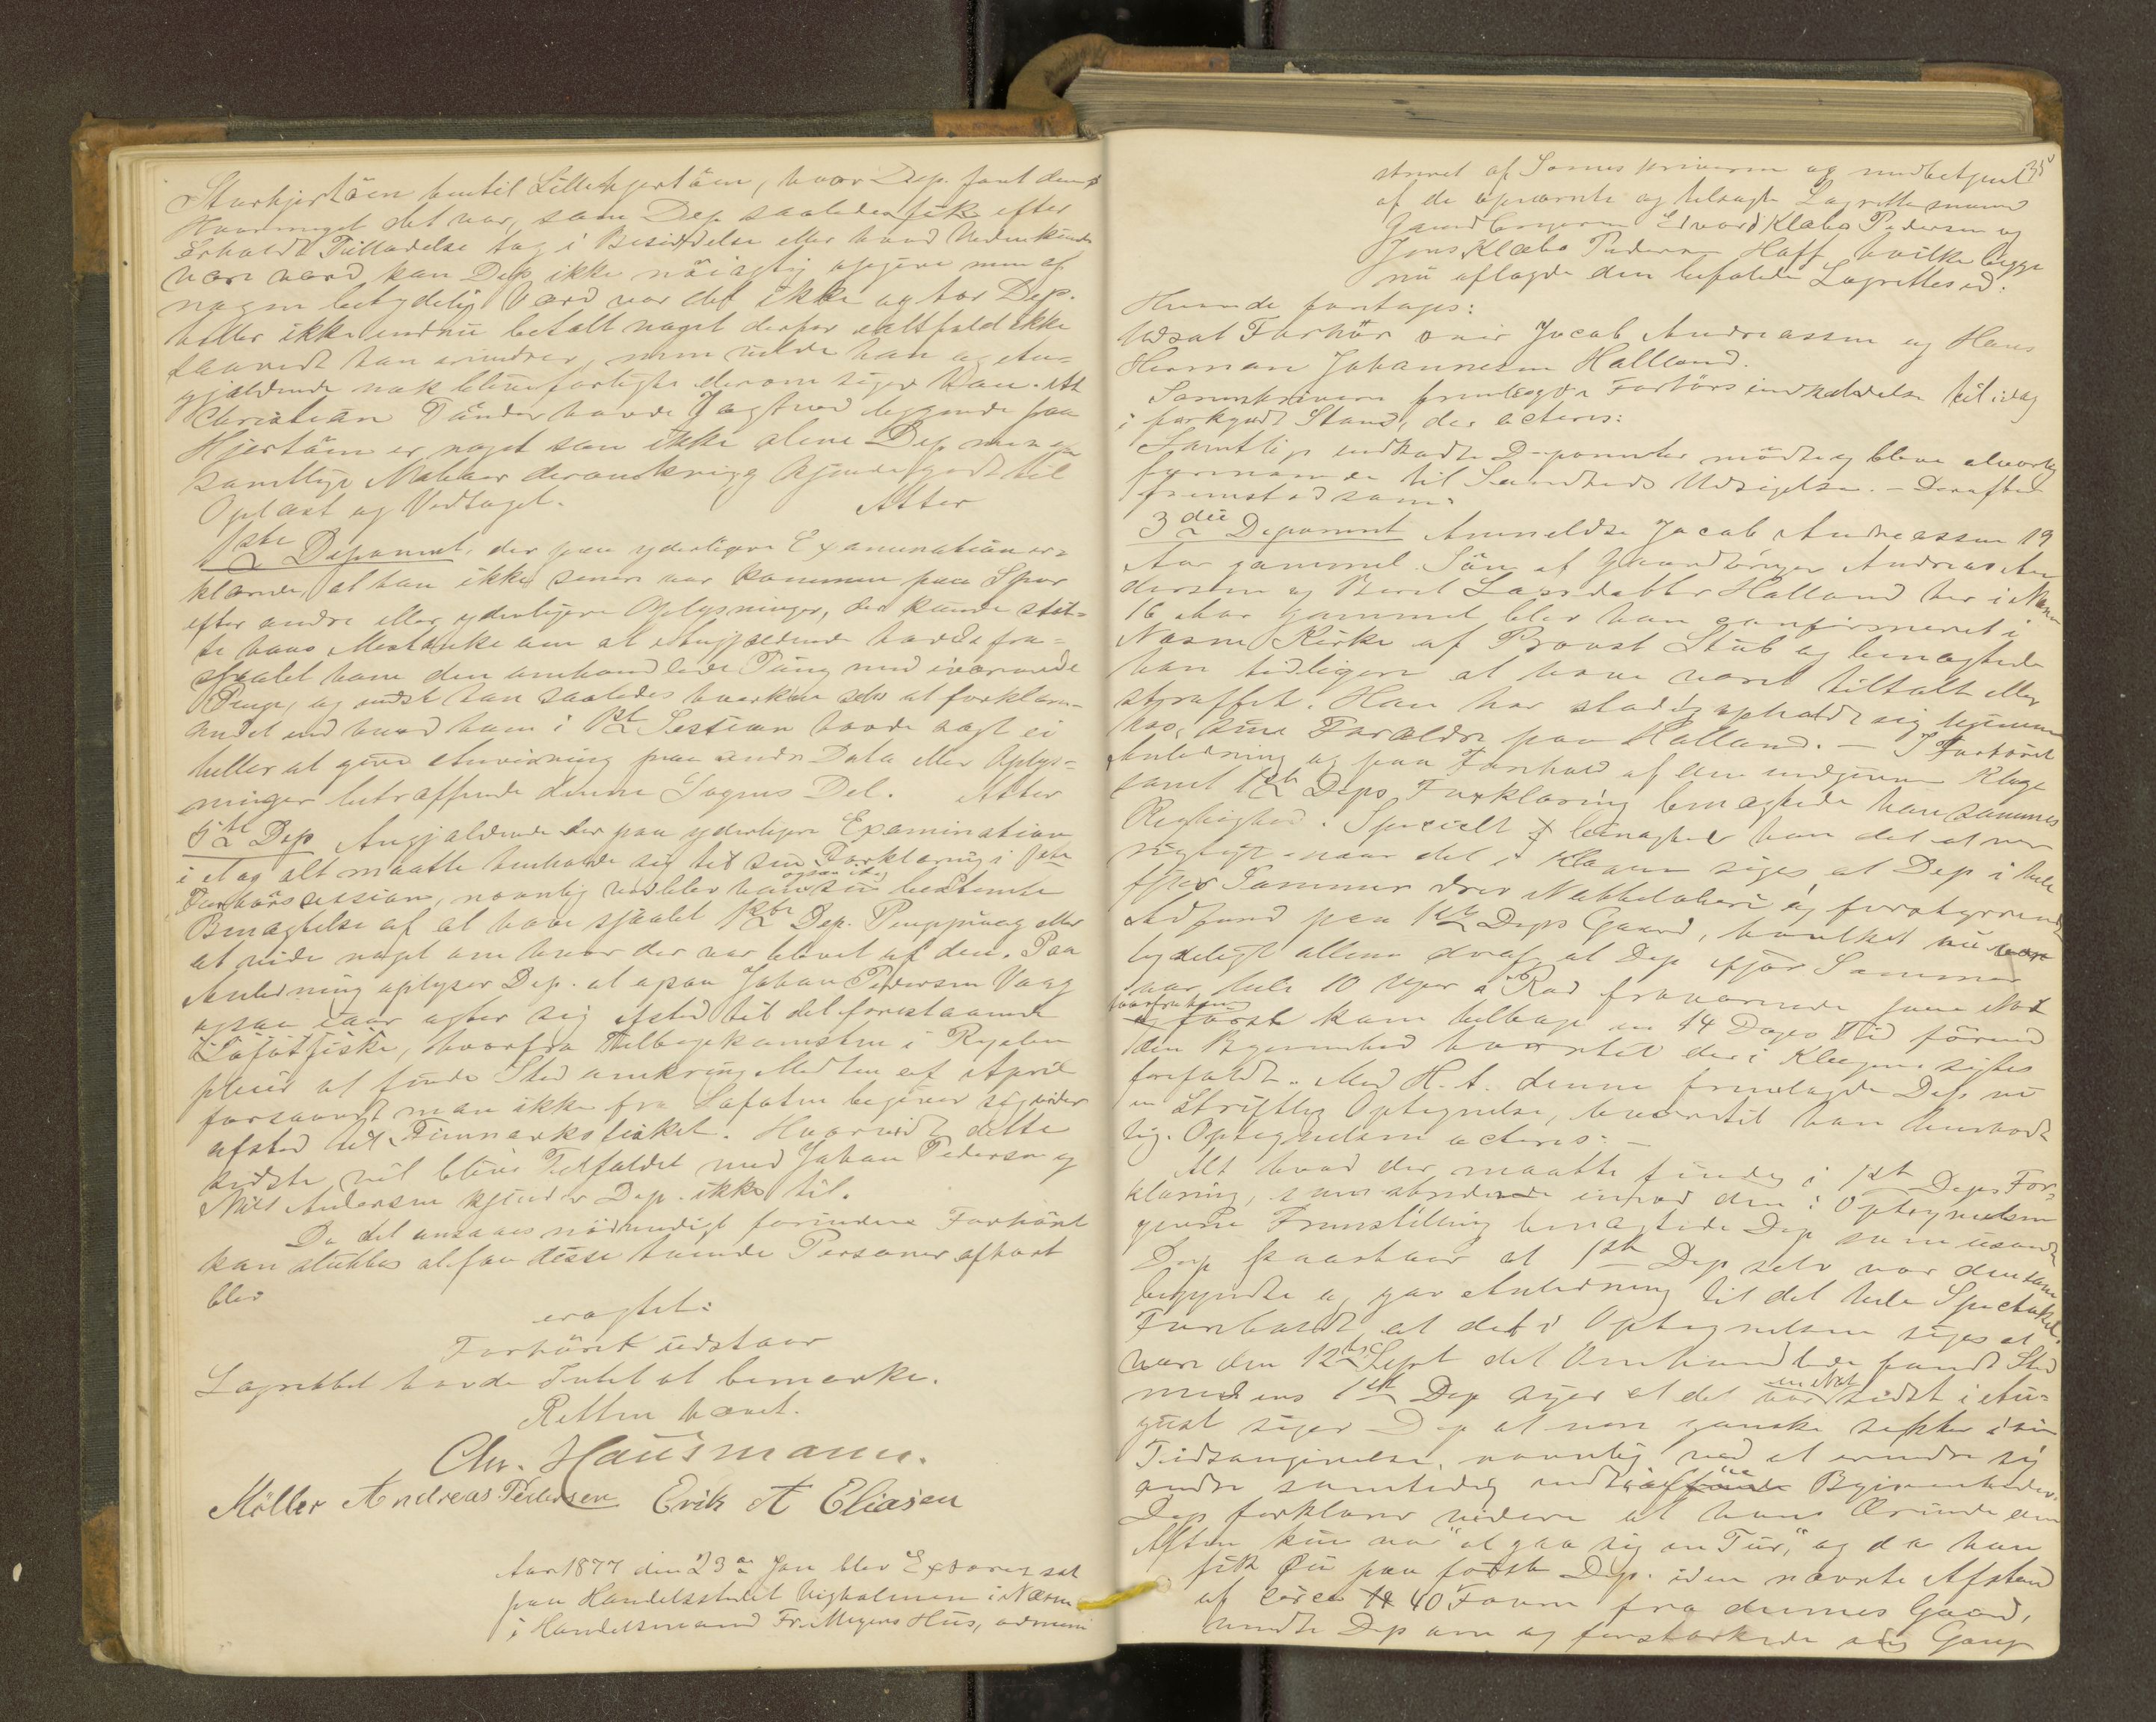 Storhjertöen hentil Lillehjertöen, hvor Dep. fant dem
Hvormeget det var, som Dep saaledes fik efter
erholdt Tilladelse tog i Besiddelse eller hvad Veden kunde
være værd kan Dep ikke nöiagtig opgive men af
nogen betydelig Værd var det ikke og har Dep.
heller ikke endnu betalt noget derfor ialtfald ikke
saavidt han erindrer, men vilde han og An-
gjældende nok blive forligte derom siger han. At
Christian Tander havde Jagtved liggende paa
Hjertöen er noget som ikke alene Dep men og
samtlige Naboer deromkring kjender godt til
Oplæst og Vedtaget. Atter
1ste Deponent, der paa yderligere Examination er-
klærede, at han ikke senere var kommen paa Spor
efter andre eller yderligere Oplysninger, der kunde støt-
te hans Mistanke om at Angjældende havde fra-
stjaalet ham den omhandlede Pung med iværende
Penge, og vidste han saaledes hverken selv at forklare
andet end hvad ham i 1ste Session havde sagt ei
heller at give Anvisning paa andre Data eller Oplys-
ninger betræffende denne Sagens Del. Atter
5te Dep Angjældende der paa yderligere Examination
i et og alt maatte henholde sig til sin Forklaring i første
Forhørssession, navnlig vedblev han ogsaa idag sin bestemte
Benægtelse af at have stjaalet 1ste Dep. Pengepung eller
at vide noget om hvor der var blevet af den. Paa
Anledning oplyser Dep. at ogsaa Johan Pedersen Vaag
ogsaa iaar agter sig afsted til det forestaaende
Lofotfiske, hvorfra Tilbagekomsten i Regelen
pleier at finde Sted omkring Midten af April
forsaavidt man ikke fra Lofoten begiver sig videre
afsted til Finmarksfisket. Hvorvidt dette
sidste vil blive Tilfældet med Johan Pedersen og
Nils Andersen kjender Dep. ikke til.
Da det ansaaes nödvendigt forinden Forhöret
kan sluttes at faa disse tvende Personer afhørt
blev
eragtet:
Forhöret udstaar
Lagrettet havde Intet at bemærke.
Retten hævet.
Chr. Hausmann.
Möller Andreas Pedersen Erik A Eliasen
Aar 1877 den 23de Jan blev Extraret sat
paa Handelsstedet Vigholmen i Næsne
i Handelsmand Fr. Meyers Hus, admini
35
streret af Sorenskriveren og medbetjent
af de opnævnte og tilsagte Lagrettesmænd
Gaardbrugerne Edvard Klæbo Pedersen og
Jens Klæbo Pedersen Haff hvilke begge
nu aflagde den befalede Lagrettesed.
Hvorda foretages:
Udsat Forhör over Jacob Andreassen og Hans
Herman Johannesen Halland.
Sorenskriveren fremlagde Forhörsindkaldelse til idag
i forkyndt Stand, der acteres:
Samtlige indkaldte Deponenter mödte og bleve alvorlig
formanede til Sandheds Udsigelse. – Derefter
fremstod som:
3die Deponent Anmeldte Jacob Andreassen 19
Aar gammel. Sön af Gaardbruger Andreas An
dersen og Beret Larsdatter Halland her i Næsne
16 Aar gammel blev han confirmeret i
Næsne Kirke af Provst Stub og benægtede
han tidligere at have været tiltalt eller
straffet. Han har stadig opholdt sig hjemme
hos sine Forældre paa Halland. – I Forhöret
Anledning og paa Forehold af den indgivne Klage
samt 1ste Deps Forklaring benægtede han sammes
Rigtighed. Specielt benægtes han det at være
rigtigt naar det i Klagen siges at Dep i hele
ifjor Sommer drev Natteløberi og forstyrrende
Adfærd paa 1ste Deps Gaard, hvilket nu
tydeligt allene deraf at Dep ifjor Sommer
var hele 10 Uger a Rad fraværende paa Not
hvorfra han først kom tilbage en 14 Dages Tid förend
den Begivenhed hvortil der i Klagen sigtes
forefaldt. Med H. t. denne fremlagde Dep nu
en skriftlig Optegnelse, hvortil han henholdt
sig. Optegnelsen acteres: –
Alt hvad der maatte findes i 1ste Deps For-
klaring, som stridende imod den i Optegnelsen
givne Fremstilling benægtede Dep som usandt
Dep paastaar at 1ste Dep selv var den som
begyndte og gav Anledning til det hele Spectakel.
Foreholdt at det i Optegnelsen siges at
være den 12te Sept det Omhandlede fandt Sted
medens 1ste Dep siger at det var en Nat sidst i Au-
gust siger Dep at være ganske sikker i sin
Tidsangivelse, navnlig ved at erindre sig
andre samtidig indtrufne Begivenheder.
Dep forklarer videre at hans Ærinde den
Aften kun var "at gaa sig en Tur", og da han
fik Öie paa første Dep. i den nævnte Afstand
af circa 40 Favne fra dennes Gaard,
vendte Dep om og forstærkede sin Gang